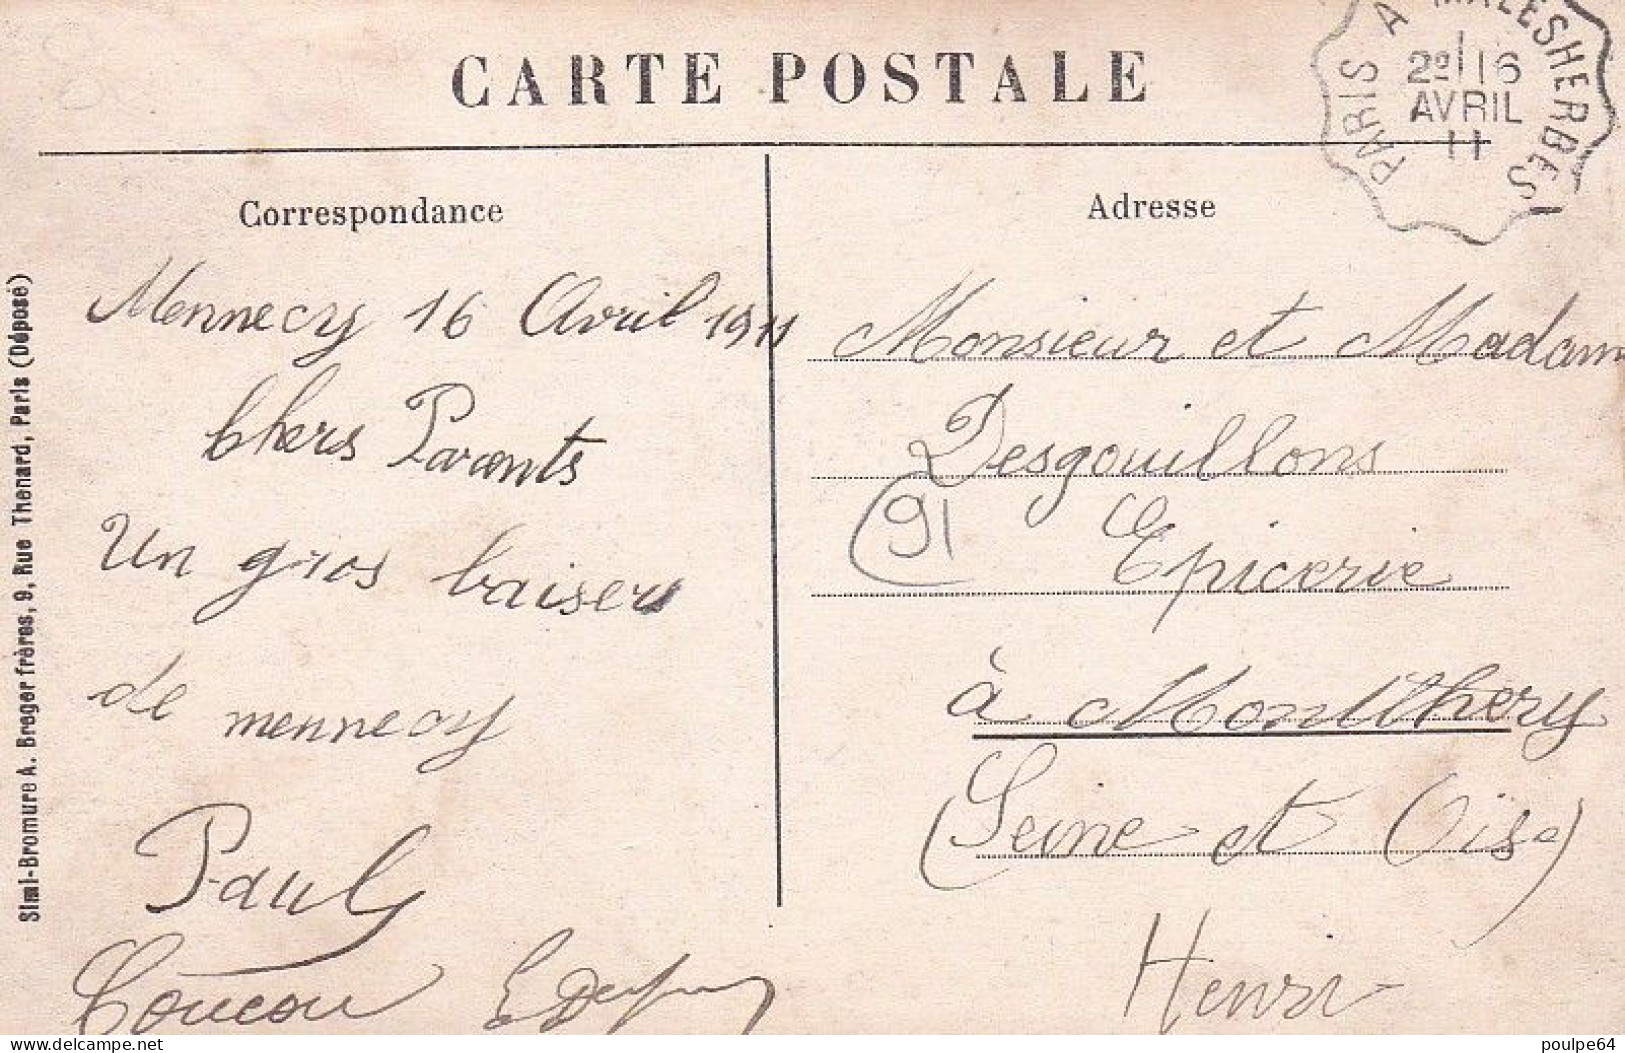 CARTE POSTALE
PARIS A MALESHERBES
2º 16
AVRIL
11
Correspondance
Adresse
Mennecy 16 Avril 1911
Chers Parents
Un gros baisers
de mennecy
Paul
Coucou
Monsieur et Madam
Desgouillons
(91
Epicerie
à Montlhery
(Seine et Oïse)
Henri
Simi-Bromure A. Breger frères, 9, Rue Thenard, Paris (Déposé)
delcampe.net
poulpe64